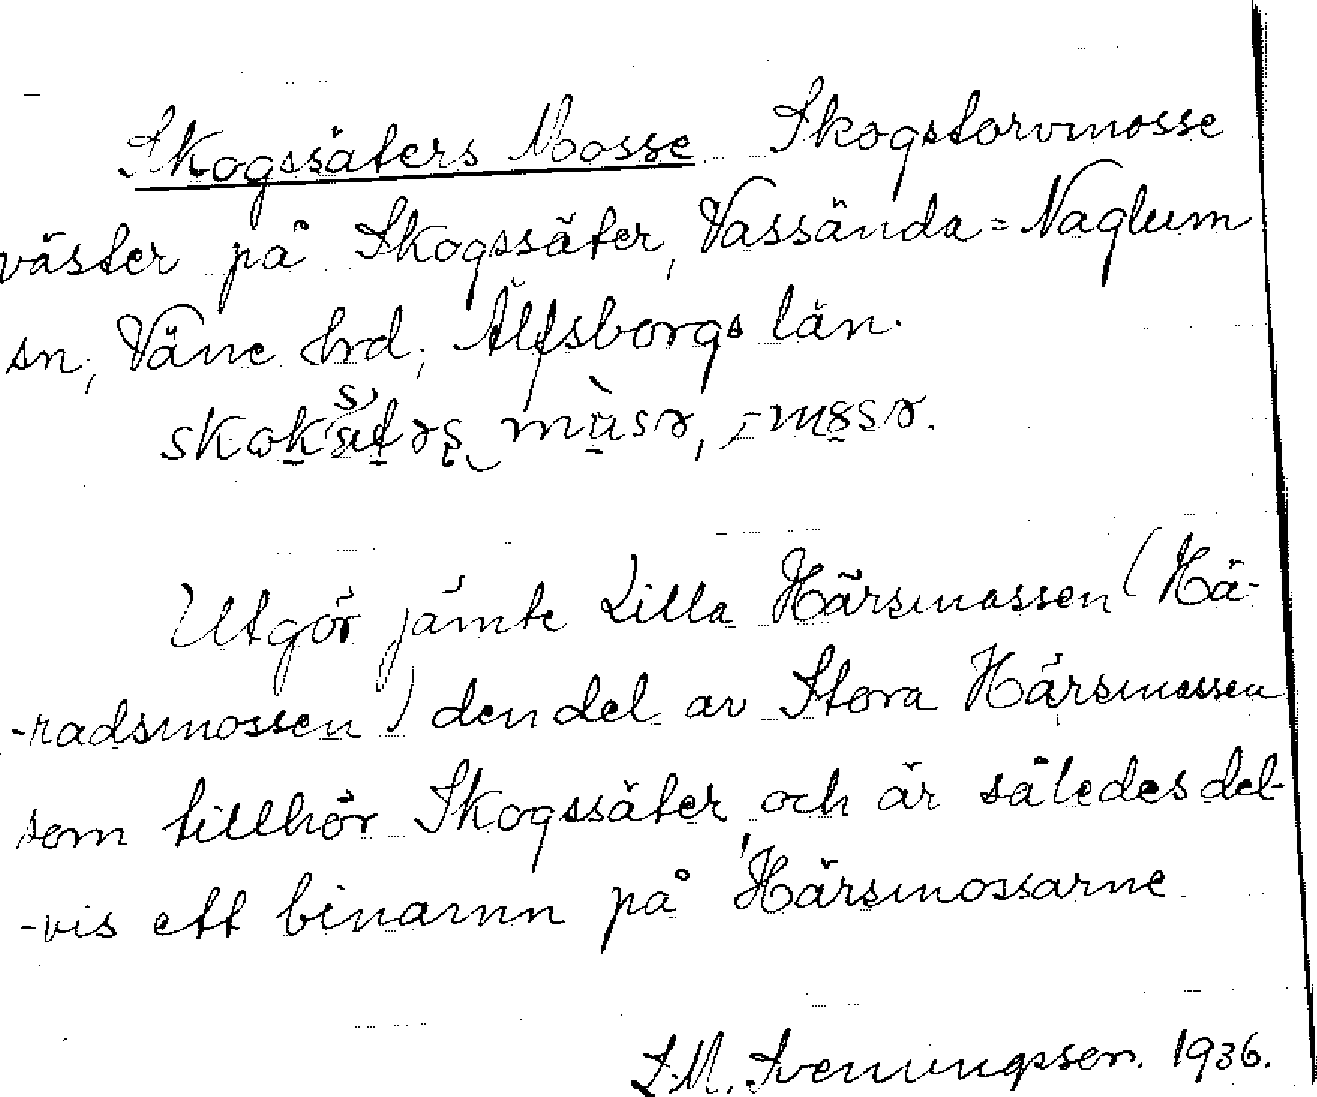 Skogssäters Mosse Skogstorvmosse
väster på Skogssäter, Vassända=Naglum
sn, Väne hrd, Älfsborgs län.
Utgör jämte Lilla Härsmossen (Hä-
-radsmossen) den del av Stora Härsmossen
som tillhör Skogssäter, och är således del-
-vis ett binamn på Härsmossarne
S.M. Sveningsson. 1936.